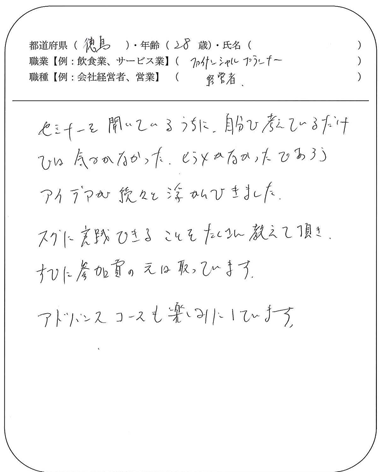 都道府県（ 徳島 ）・年齢（ 28 歳）・氏名（ ）
職業【例：飲食業、サービス業】（ ファイナンシャルプランナー ）
職種【例：会社経営者、営業】（ 経営者. ）
セミナーを聞いているうちに、自分で考えているだけ
では気づかなかった、生まれなかったであろう
アイデアが続々と浮かんできました.
スグに実践できることをたくさん教えて頂き、
すでに参加費の元は取っています.
アドバンスコースも楽しみにしています.